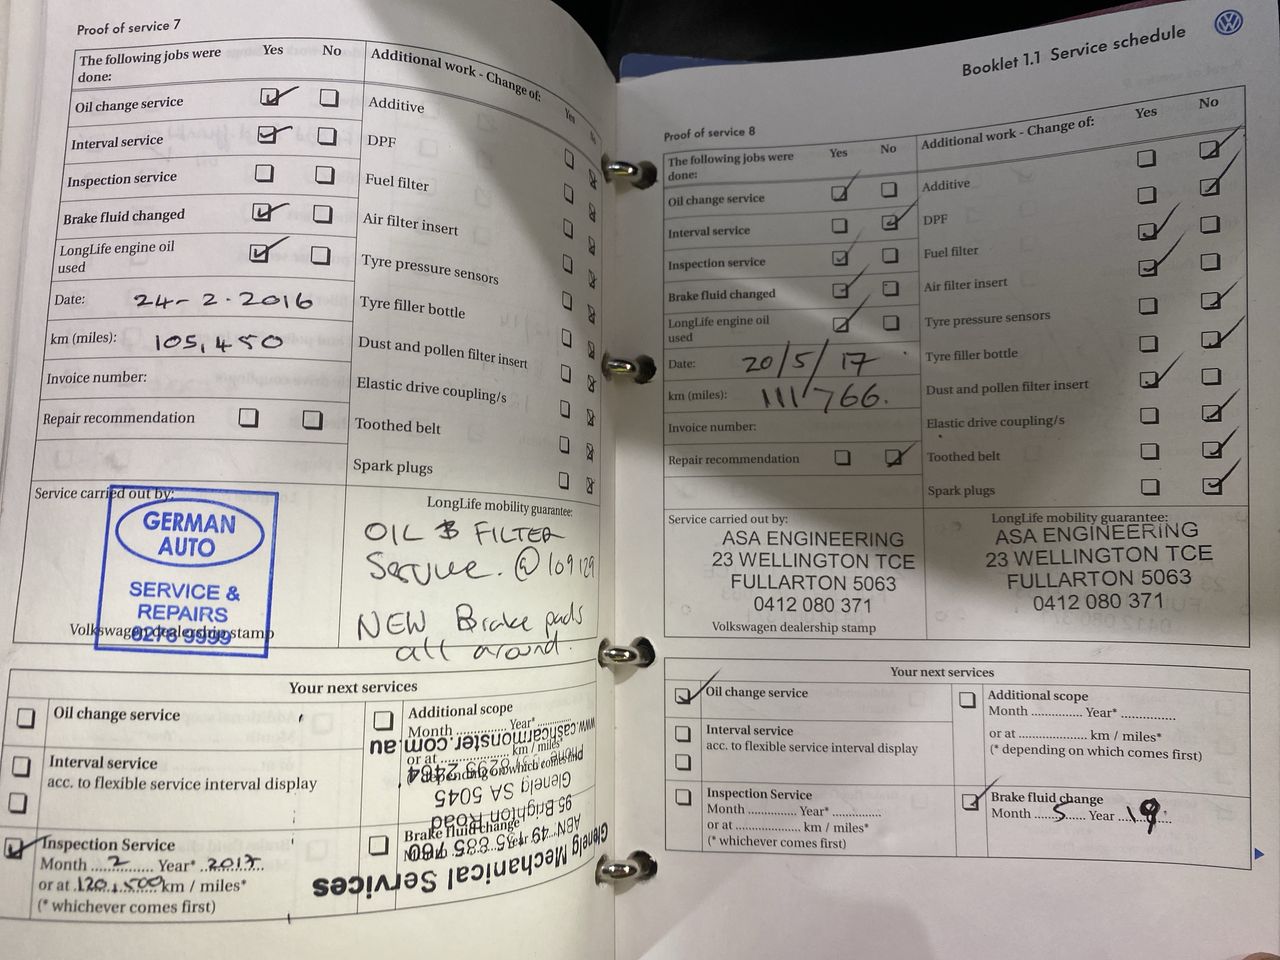 Proof of service 7
The following jobs were done:
Yes
No
Oil change service
Interval service
Inspection service
Brake fluid changed
LongLife engine oil used
Date: 24-2.2016
km (miles): 105,450
Invoice number:
Repair recommendation
Additional work - Change of:
Yes
No
Additive
DPF
Fuel filter
Air filter insert
Tyre pressure sensors
Tyre filler bottle
Dust and pollen filter insert
Elastic drive coupling/s
Toothed belt
Spark plugs
Service carried out by:
GERMAN
AUTO
SERVICE &
REPAIRS
Volkswagen dealership stamp
LongLife mobility guarantee:
OIL & FILTER
Service. @ 109129
NEW Brake pads
all around.
Your next services
Oil change service
Interval service
acc. to flexible service interval display
Inspection Service
Month 2 Year* 2017
or at 120,500 km / miles*
(* whichever comes first)
Additional scope
Month Year*
or at km / miles*
(* depending on which comes first)
Brake fluid change
Glenelg Mechanical Services
ABN: 49 135 885 760
95 Brighton Road
Glenelg SA 5045
www.cashcarmonster.com.au
Booklet 1.1 Service schedule
Proof of service 8
The following jobs were done:
Yes
No
Oil change service
Interval service
Inspection service
Brake fluid changed
LongLife engine oil used
Date: 20/5/17
km (miles): 111/766.
Invoice number:
Repair recommendation
Additional work - Change of:
Yes
No
Additive
DPF
Fuel filter
Air filter insert
Tyre pressure sensors
Tyre filler bottle
Dust and pollen filter insert
Elastic drive coupling/s
Toothed belt
Spark plugs
Service carried out by:
ASA ENGINEERING
23 WELLINGTON TCE
FULLARTON 5063
0412 080 371
Volkswagen dealership stamp
LongLife mobility guarantee:
ASA ENGINEERING
23 WELLINGTON TCE
FULLARTON 5063
0412 080 371
Your next services
Oil change service
Interval service
acc. to flexible service interval display
Inspection Service
Month Year*
or at km / miles*
(* whichever comes first)
Additional scope
Month Year*
or at km / miles*
(* depending on which comes first)
Brake fluid change
Month 5 Year 19